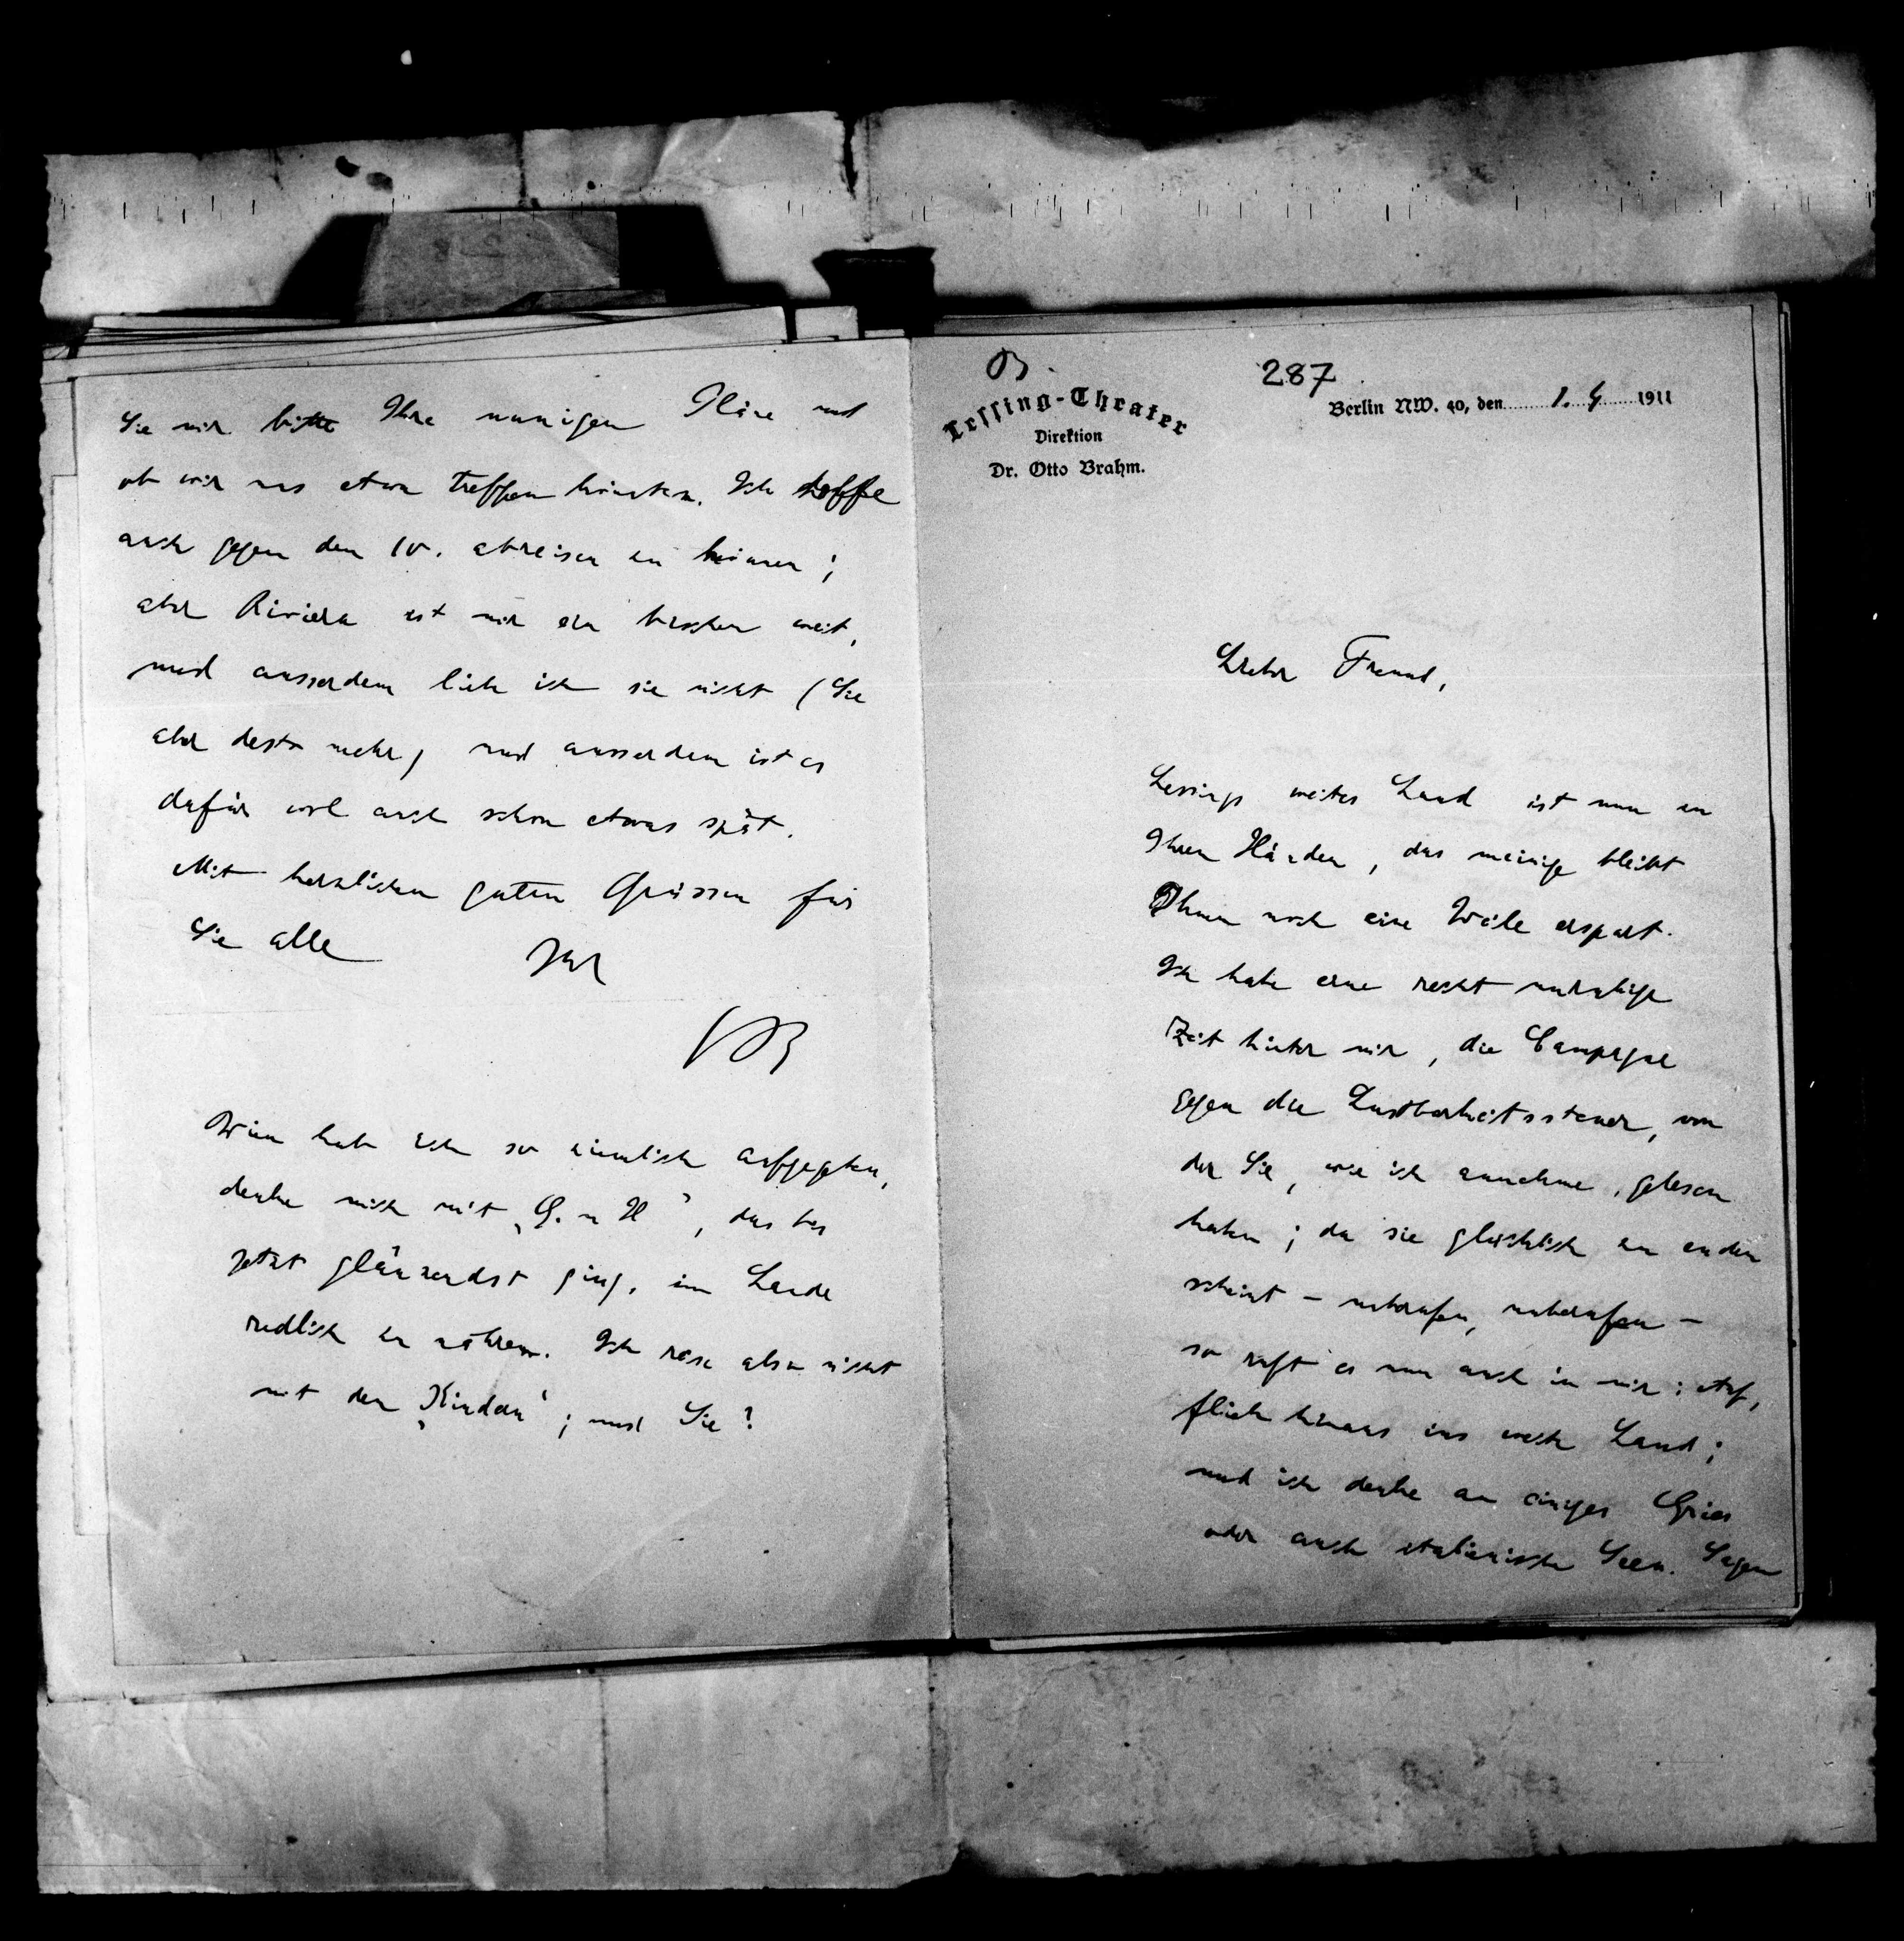 B.
287
Lessing-Theater
Direktion
Dr. Otto Brahm.
Berlin NW. 40, den 1. 4 1911
Lieber Freund,
Lessings weites Land ist nun in
Ihren Händen, das meinige bleibt
Ihnen noch eine Weile erspart.
Ich habe eine recht unruhige
Zeit hinter mir, die Campagne
gegen die Lustbarkeitssteuer, von
der Sie, wie ich annehme, gelesen
haben; da sie glücklich zu enden
scheint – unberufen, unberufen –
so ruft es nun auch in mir: Auf,
flieh hinaus ins weite Land;
und ich denke an einiges Gries
oder auch italienische Seen. Sagen
Sie mir bitte Ihre nunigen Pläne und
ob wir uns etwa treffen könnten. Ich hoffe
auch gegen den 10. abreisen zu können;
aber Riviera ist mir ein bischen weit,
und ausserdem liebe ich sie nicht (Sie
aber desto mehr) und ausserdem ist es
dafür wol auch schon etwas spät.
Mit herzlichen guten Grüssen für
Sie alle Ihr
OB
Wien hab ich so ziemlich aufgegeben,
denke mich mit „G. u H“, das bis
jetzt glänzendst ging, im Lande
redlich zu nähren. Ich reise also nicht
mit den „Kindern“; und Sie?